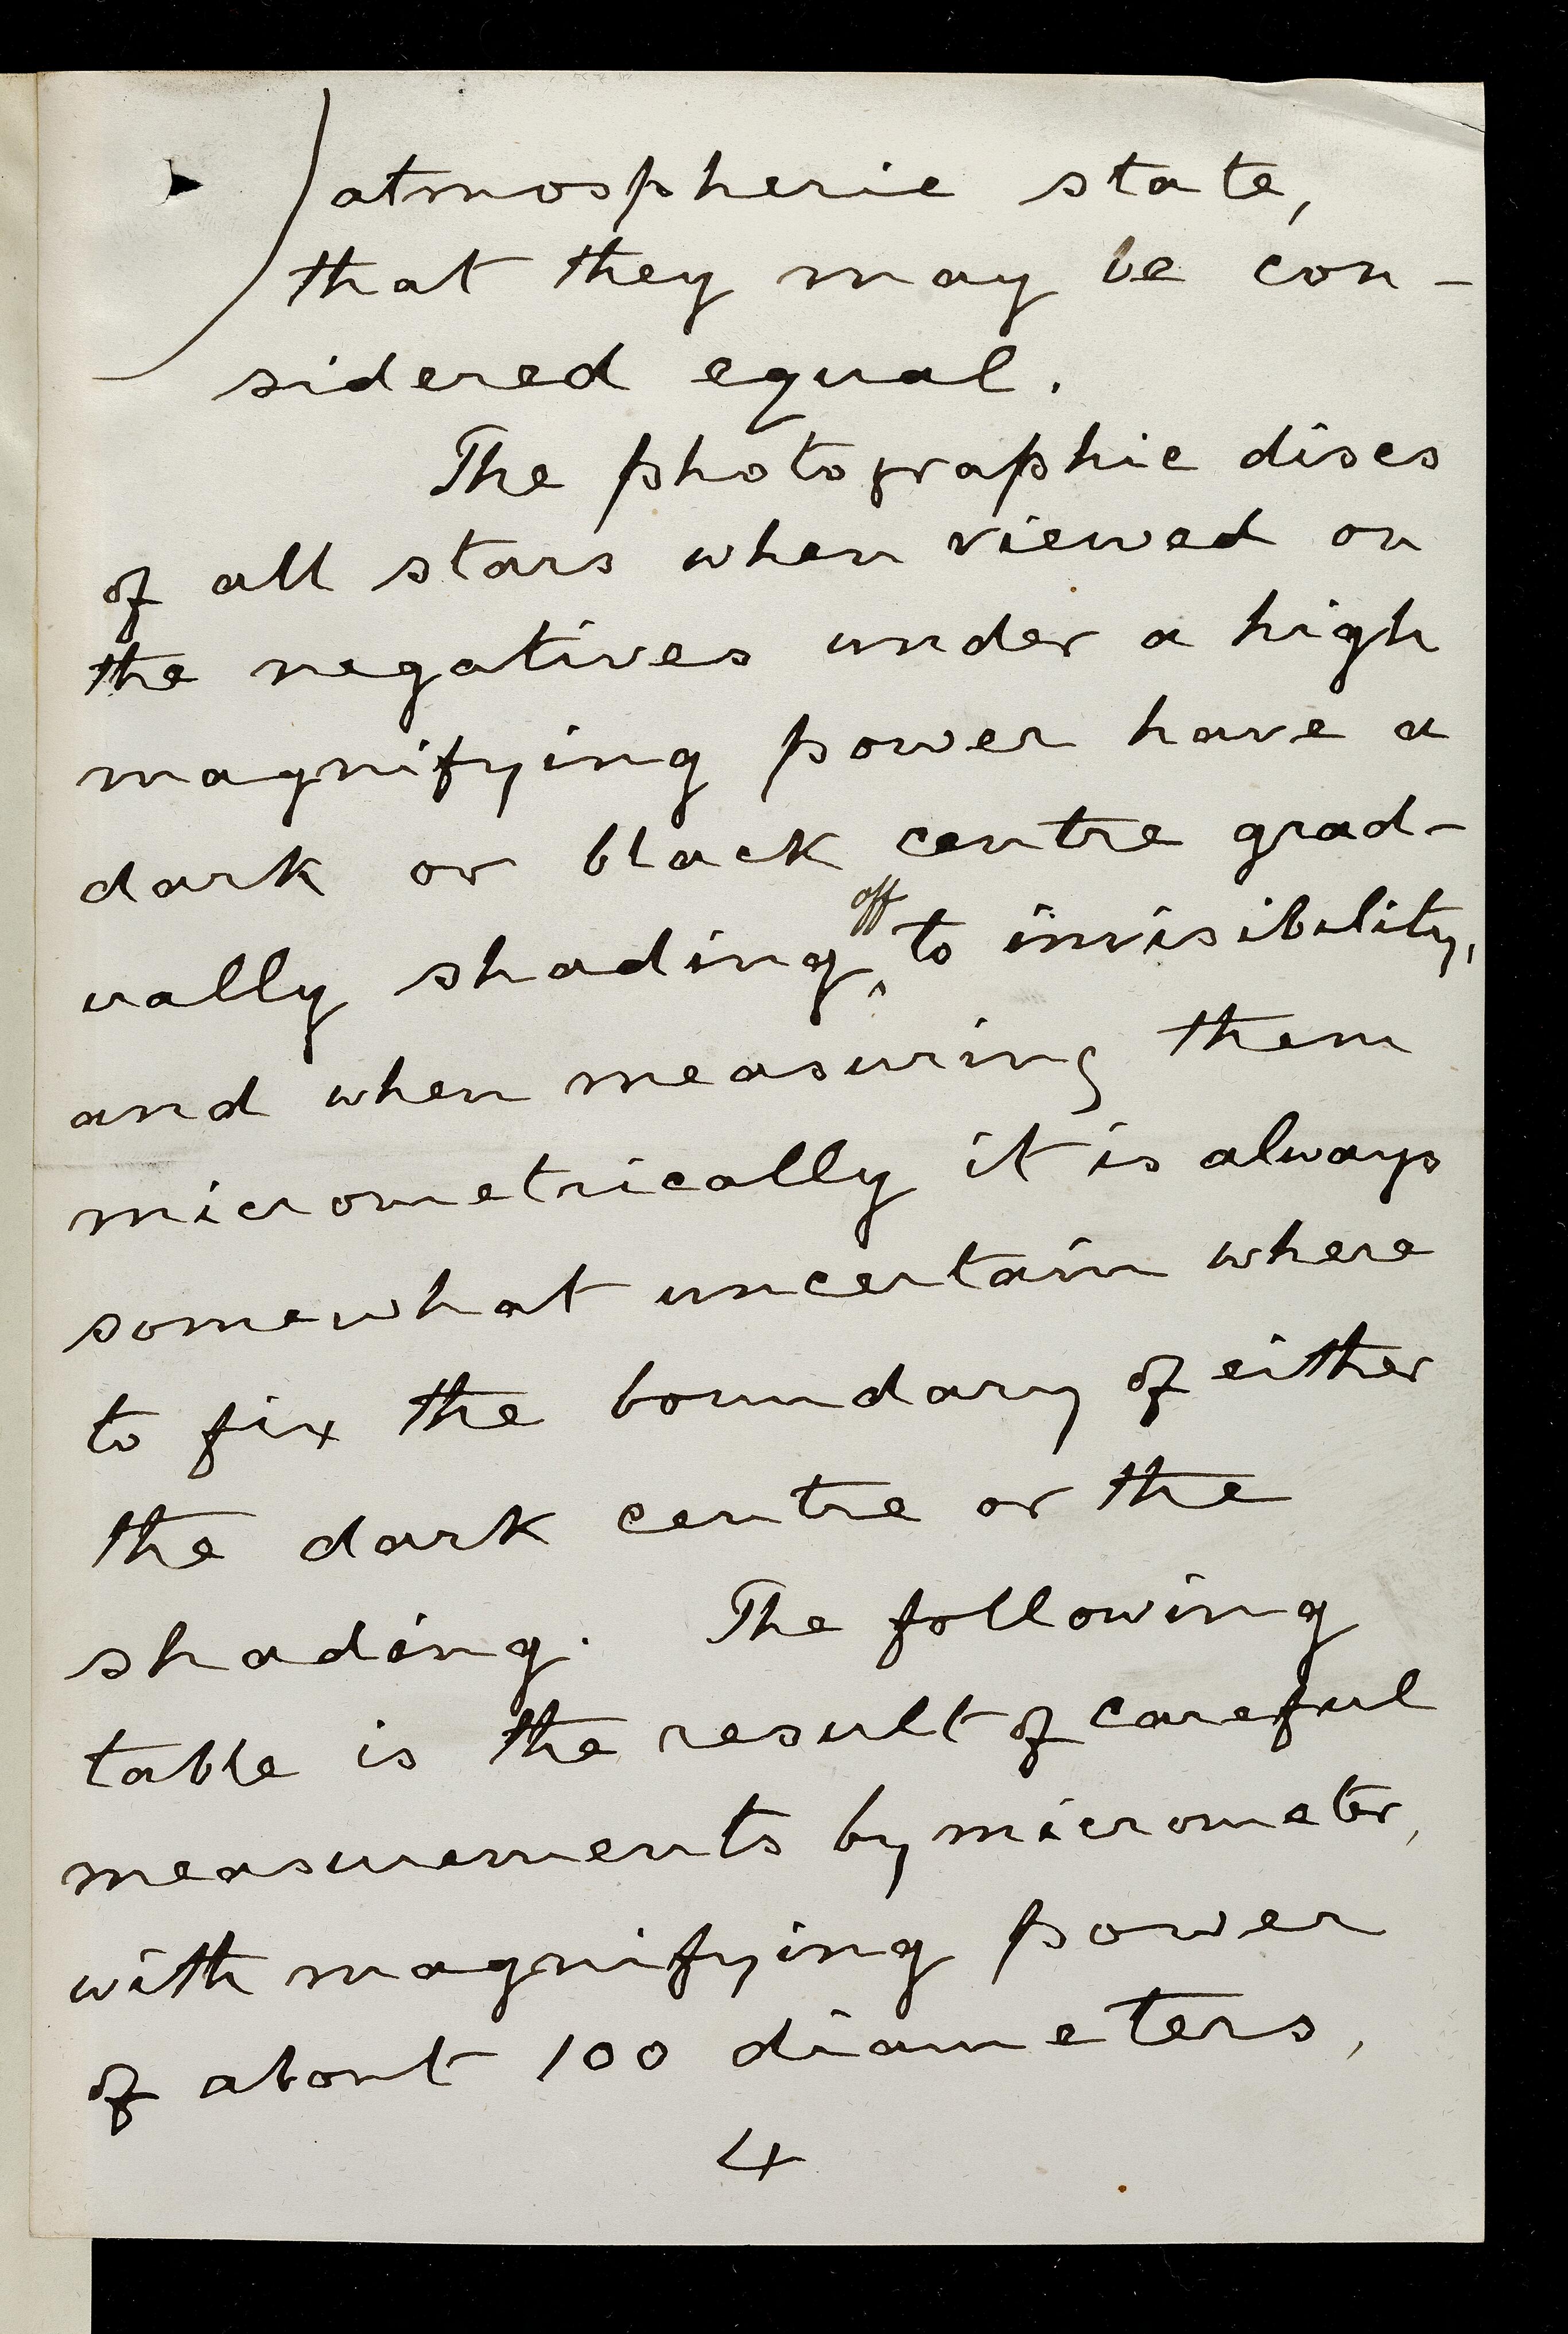 atmospheric state,
that they may be con-
sidered equal.
The photographic discs
of all stars when viewed on
the negatives under a high
magnifying power have a
dark or black centre grad-
ually shading off to invisibility,
and when measuring them
micrometrically it is always
somewhat uncertain where
to fix the boundary of either
the dark centre or the
shading. The following
table is the result of careful
measurements by micrometer,
with magnifying power
of about 100 diameters,
4